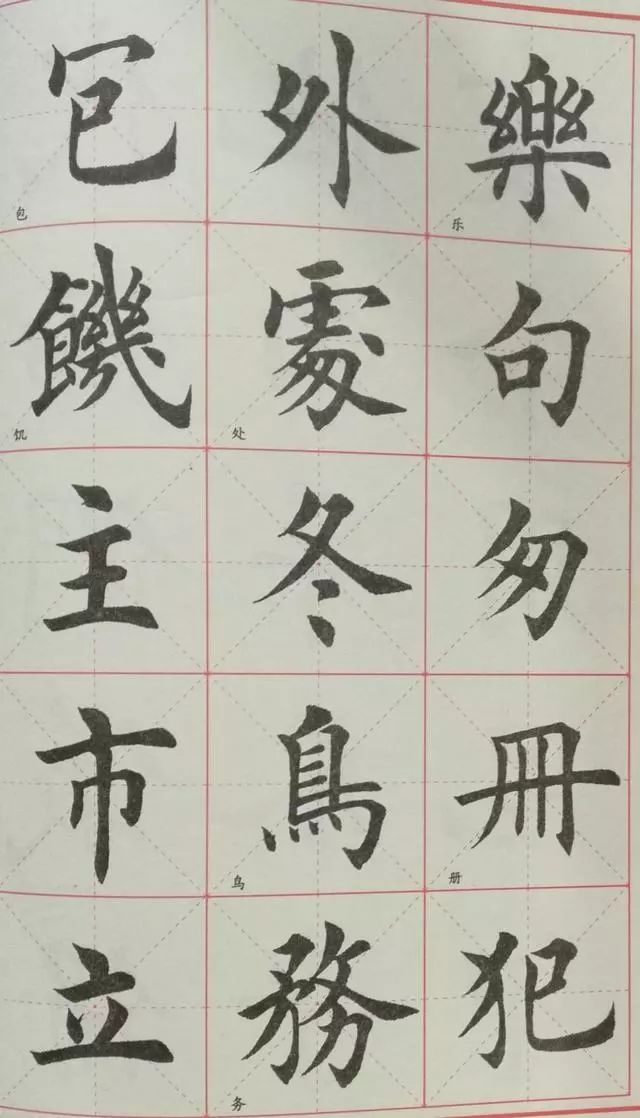 樂
乐
句
匆
冊
册
犯
外
處
处
冬
鳥
鸟
務
务
包
包
饑
饥
主
市
立